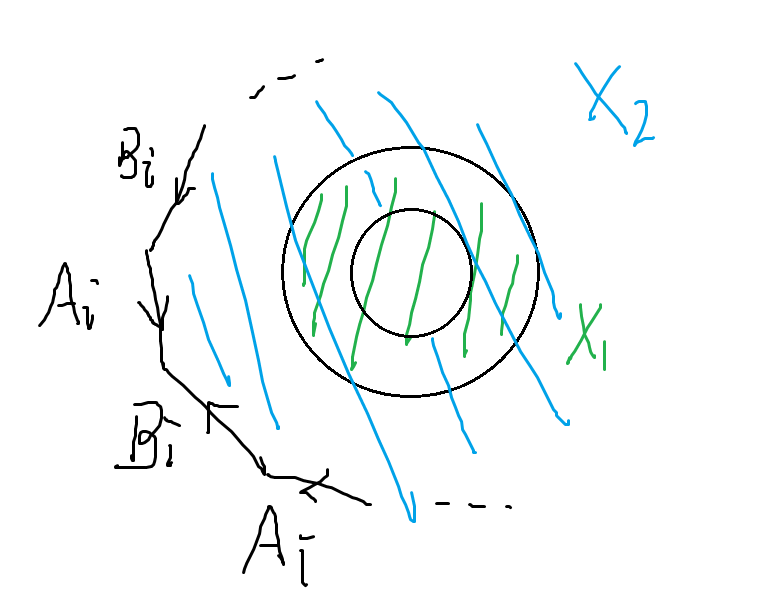 X₂
B_i
A_i
X₁
B_i
A_i